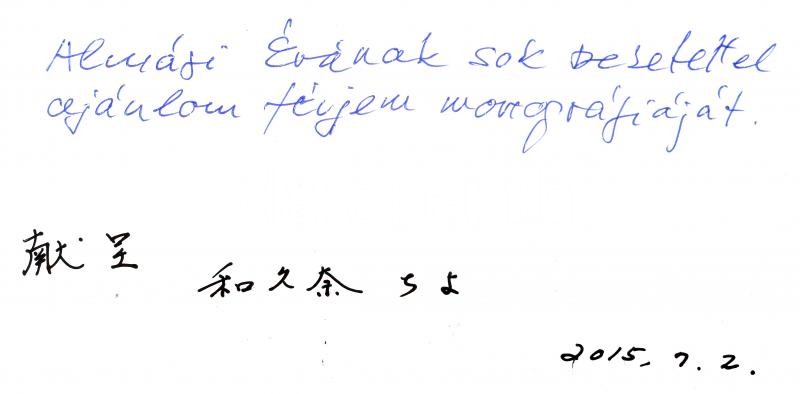 Almási Évának sok szeretettel
ajánlom férjem monográfiáját.
献呈
和久奈 ちよ
2015. 7. 2.